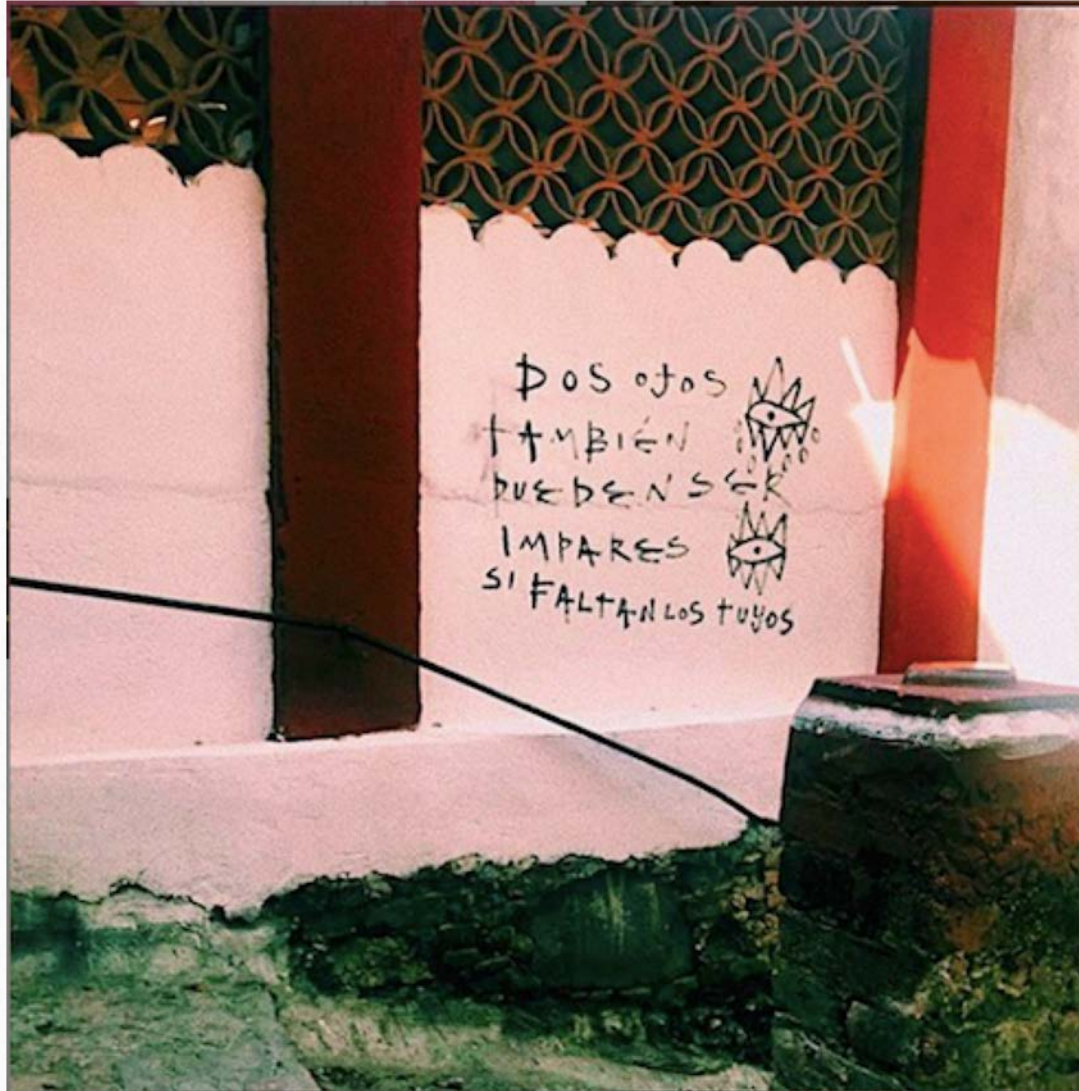 DOS OJOS
TAMBIÉN
PUEDEN SER
IMPARES
SI FALTAN LOS TUYOS